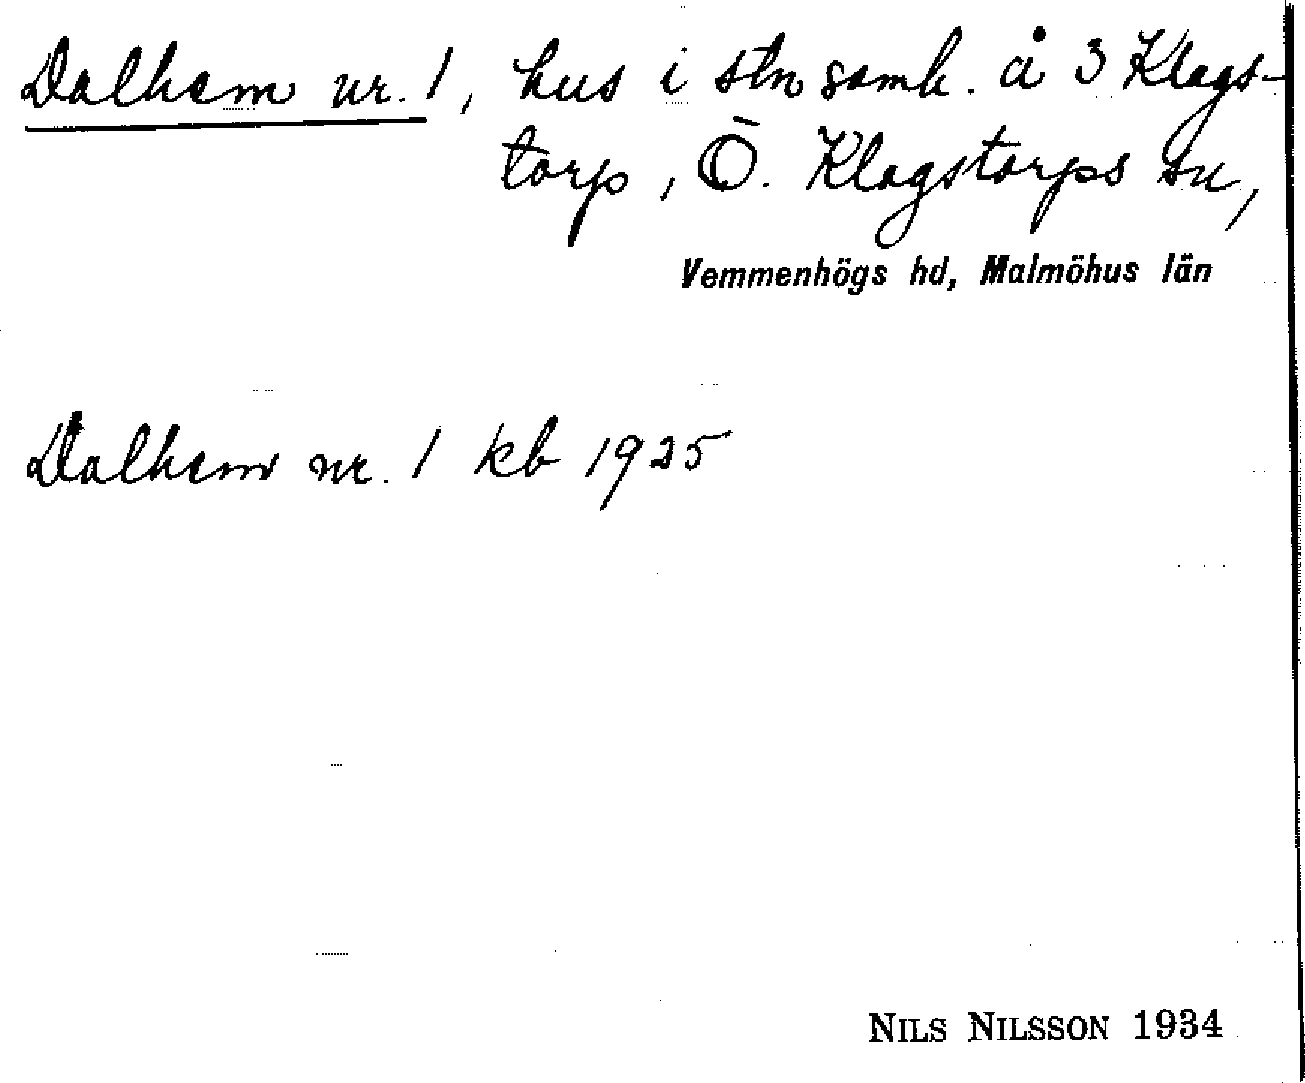 Dalhem nr. 1, hus i stn samh. å 3 Klags-
torp, Ö. Klagstorps sn,
Vemmenhögs hd, Malmöhus län
Dalhem nr. 1 kb 1925
NILS NILSSON 1934